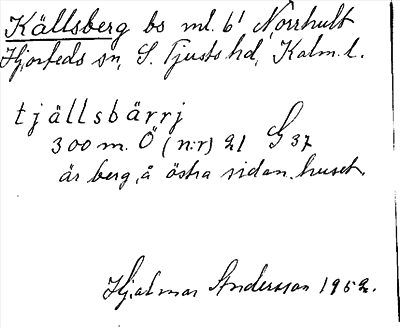 Källsberg bs ml. 6¹ Norrhult
Hjorteds sn, S. Tjusts hd, Kalm. l.
tjällsbärrj
300 m. Ö (n:r) 21 G 37
är berg å östra sidan huset
Hjalmar Andersson 1952.